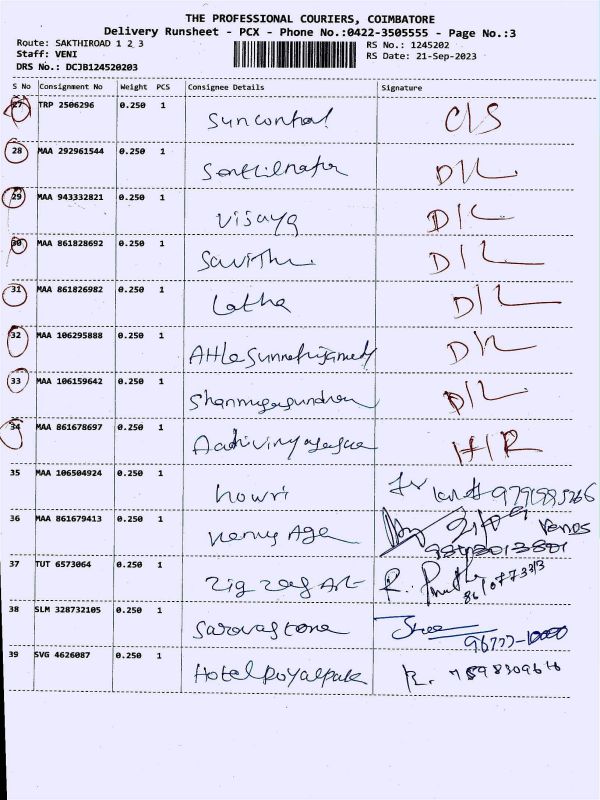 THE PROFESSIONAL COURIERS, COIMBATORE
Delivery Runsheet - PCX - Phone No.:0422-3505555 - Page No.:3
Route: SAKTHIROAD 1 2 3 RS No.: 1245202
Staff: VENI RS Date: 21-Sep-2023
DRS No.: DCJB124520203
S No Consignment No Weight PCS Consignee Details Signature
27 TRP 2506296 0.250 1 C/S
28 MAA 292961544 0.250 1 D/L
29 MAA 943332821 0.250 1 Vijaya D/L
30 MAA 861828692 0.250 1 D/L
31 MAA 861826982 0.250 1 Latha D/L
32 MAA 106295888 0.250 1 D/L
33 MAA 106159642 0.250 1 D/L
34 MAA 861678697 0.250 1
35 MAA 106504924 0.250 1
36 MAA 861679413 0.250 1
37 TUT 6573064 0.250 1 Zig Zag Art
38 SLM 328732105 0.250 1 Saravastone
39 SVG 4626087 0.250 1 Hotel Royalpark